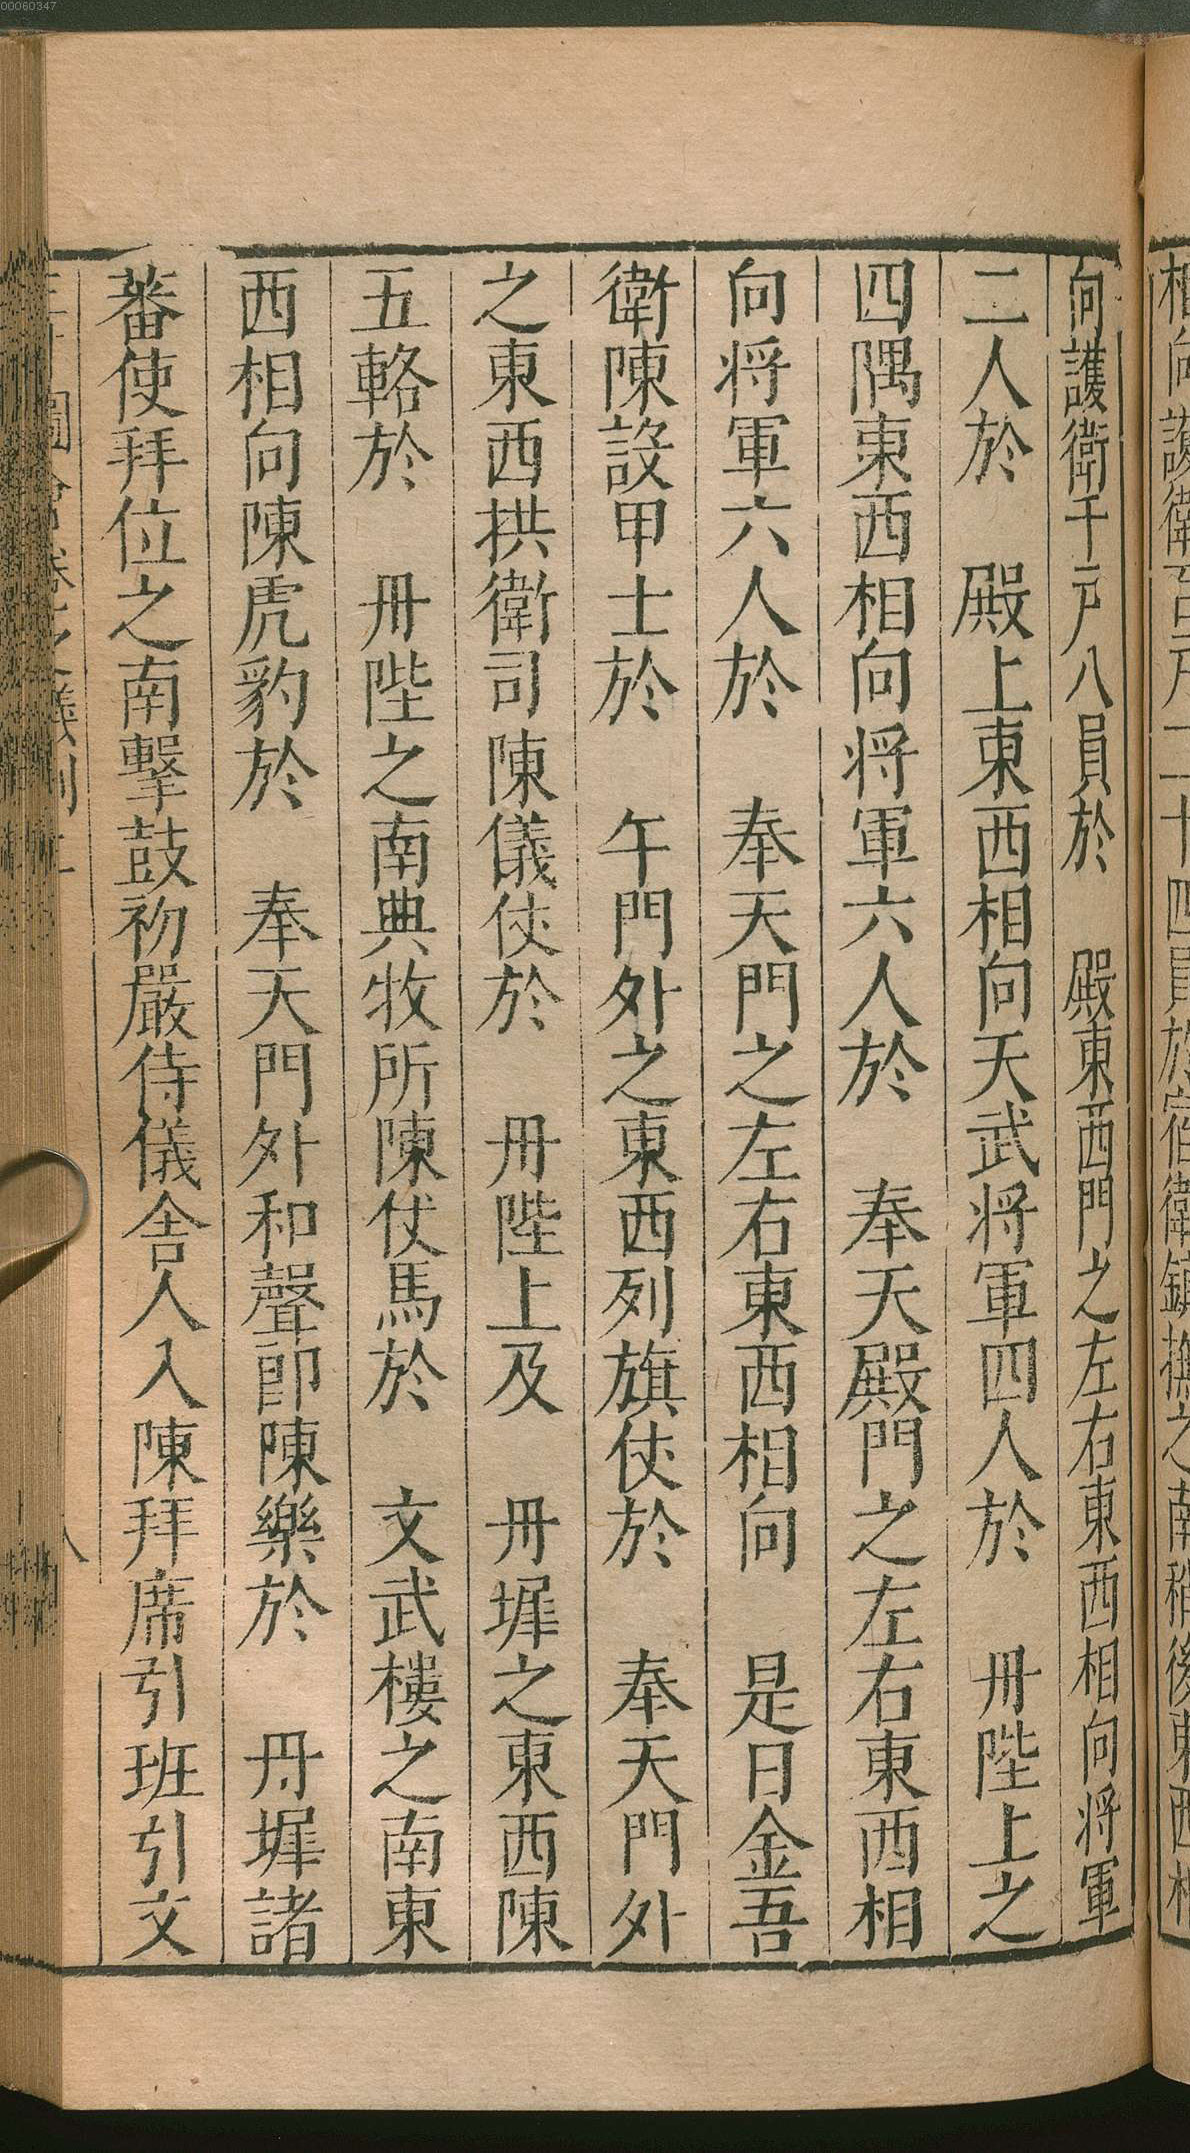 00060347
相向護衛百戶二十四員於宿衛鎮撫之南稍後東西相
向護衛千戶八員於　殿東西門之左右東西相向将軍
二人於　殿上東西相向天武将軍四人於　丹陛上之
四隅東西相向将軍六人於　奉天殿門之左右東西相
向将軍六人於　奉天門之左右東西相向　是日金吾
衛陳設甲士於　午門外之東西列旗仗於　奉天門外
之東西拱衛司陳儀仗於　丹陛上及　丹墀之東西陳
五輅於　丹陛之南典牧所陳仗馬於　文武樓之南東
西相向陳虎豹於　奉天門外和聲郎陳樂於　丹墀諸
蕃使拜位之南擊鼓初嚴侍儀舍人入陳拜席引班引文